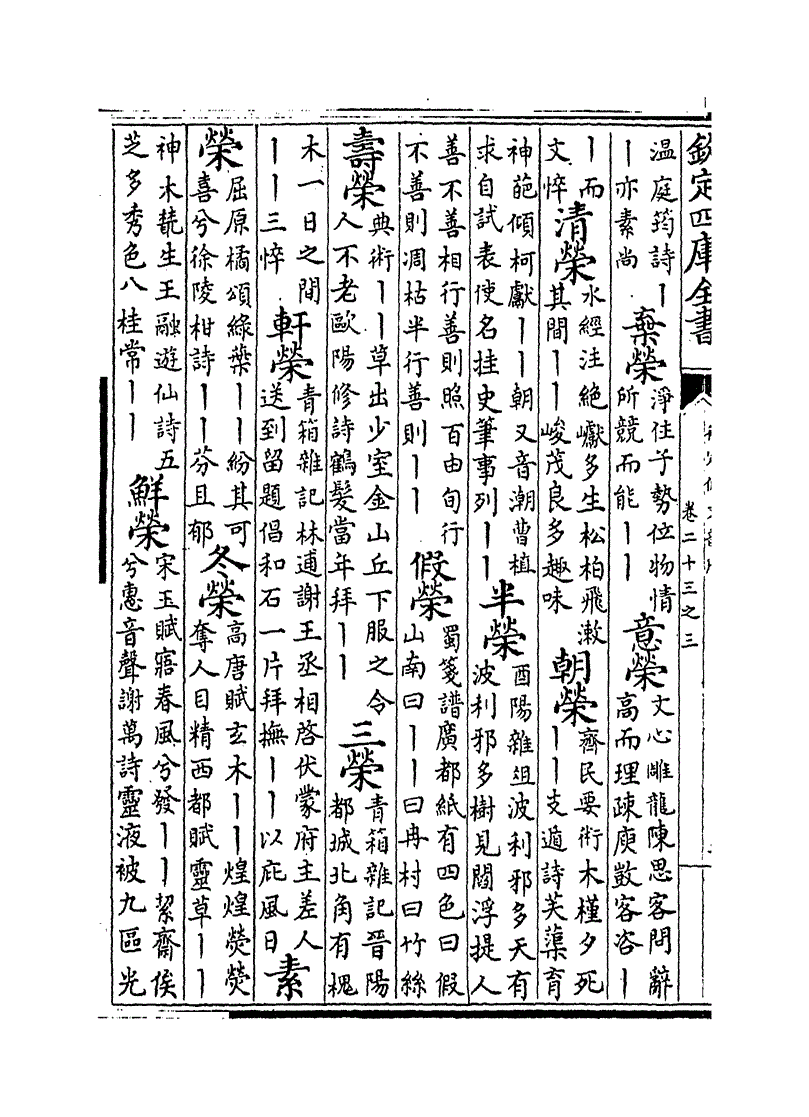 欽定四庫全書
卷二十三之三
溫庭筠詩丨丨亦素尚 棄榮 淨住子勢位物情所競而能丨丨 意榮 文心雕龍陳思客問辭高而理疎庾敳客咨丨
丨而文悴 清榮 水經注絶巘多生松柏飛漱其間丨丨峻茂良多趣味 朝榮 齊民要術木槿夕死丨丨支遁詩芙蕖育
神葩傾柯獻丨丨朝又音潮曹植求自試表使名挂史筆事列丨丨 半榮 酉陽雜俎波利邪多天有波利邪多樹見閻浮提人
善不善相行善則照百由旬行不善則凋枯半行善則丨丨 假榮 蜀箋譜廣都紙有四色曰假山南曰丨丨曰冉村曰竹絲
壽榮 典術丨丨草出少室金山丘下服之令人不老歐陽修詩鶴髮當年拜丨丨 三榮 青箱雜記晉陽都城北角有槐
木一日之間丨丨三悴 軒榮 青箱雜記林逋謝王丞相啓伏蒙府主差人送到留題倡和石一片拜撫丨丨以庇風日 素
榮 屈原橘頌綠葉丨丨紛其可喜兮徐陵柑詩丨丨芬且郁 冬榮 高唐賦玄木丨丨煌煌熒熒奪人目精西都賦靈草丨丨
神木䕺生王融遊仙詩五芝多秀色八桂常丨丨 鮮榮 宋玉賦寤春風兮發丨丨絜齋俟兮惠音聲謝萬詩靈液被九區光